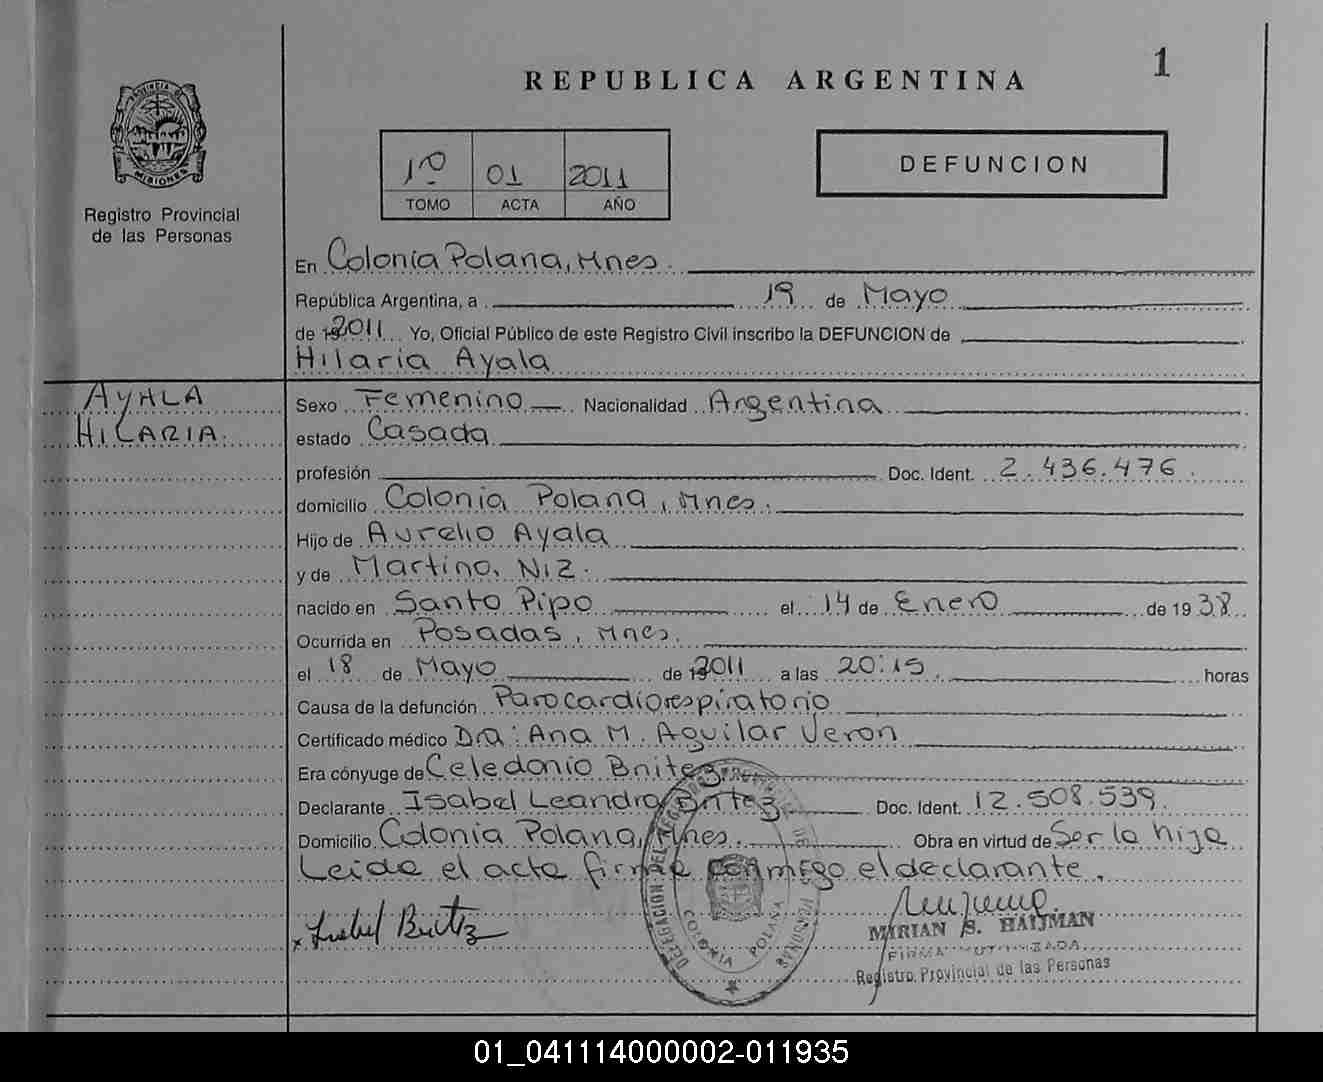 1
REPUBLICA ARGENTINA
PROVINCIA DE
MISIONES
Registro Provincial
de las Personas
1º 01 2011
TOMO ACTA AÑO
DEFUNCION
En Colonia Polana, Mnes.
República Argentina, a 19 de Mayo
de 2011 Yo, Oficial Público de este Registro Civil inscribo la DEFUNCION de
Hilaria Ayala
AYALA
HILARIA.
Sexo Femenino Nacionalidad Argentina
estado Casada
profesión Doc. Ident. 2.436.476.
domicilio Colonia Polana, Mnes.
Hijo de Aurelio Ayala
y de Martina. Niz.
nacido en Santo Pipo el 14 de Enero de 1938
Ocurrida en Posadas, Mnes.
el 18 de Mayo de 2011 a las 20:15. horas
Causa de la defunción Parocardiorespiratorio
Certificado médico Dra: Ana M. Aguilar Veron
Era cónyuge de Celedonio Bnitez
Declarante Isabel Leandra Britez Doc. Ident. 12.508.539.
Domicilio Colonia Polana, Mnes. Obra en virtud de Ser la hija
Leida el acta firma conmigo el declarante.
x Isabel Britez
DELEGACION DEL REGISTRO PROVINCIAL DE LAS PERSONAS
COLONIA POLANA
MIRIAN S. HAIJMAN
FIRMA AUTORIZADA
Registro Provincial de las Personas
01_041114000002-011935